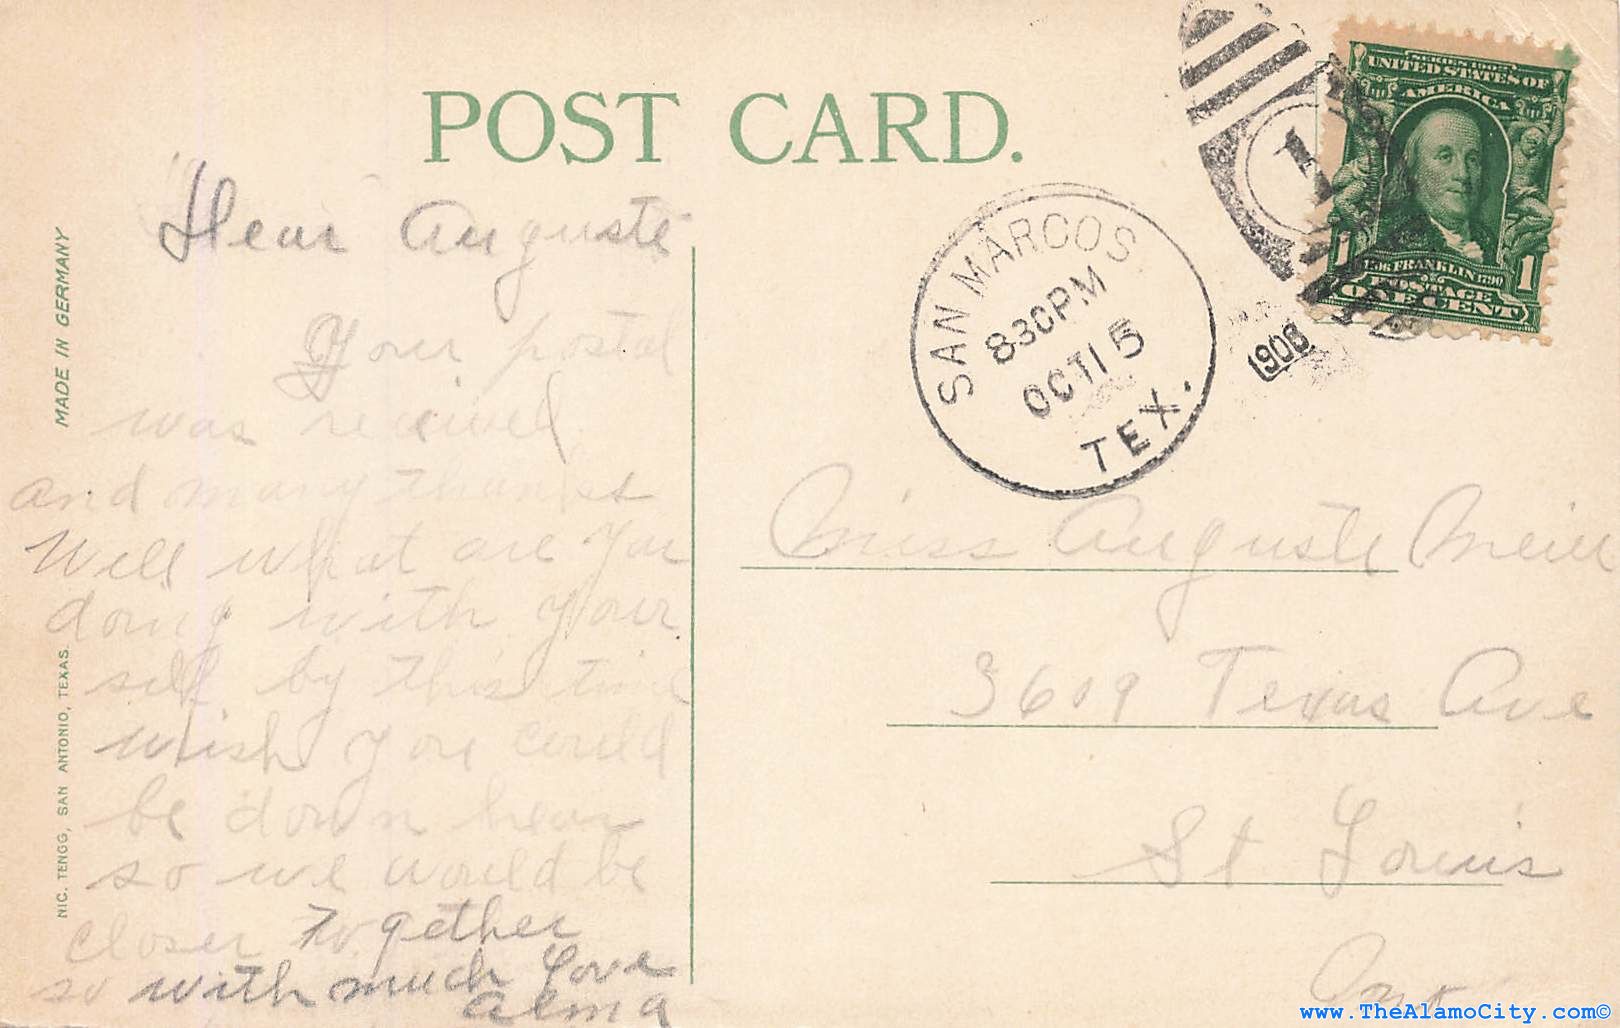 POST CARD.
MADE IN GERMANY
NIC. TENGG, SAN ANTONIO, TEXAS.
Dear Auguste
Your postal
was recived
and many thanks
Well what are you
doing with your
self by this time
wish you could
be down hear
so we would be
closer together
so with much love
Alma
SAN MARCOS
830PM
OCT 15
TEX.
1908
1
SERIES 1902
UNITED STATES OF
AMERICA
1 1
FRANKLIN 1790
POSTAGE
ONE CENT
Miss Auguste
3609 Texas Ave
St Louis
www.TheAlamoCity.com©